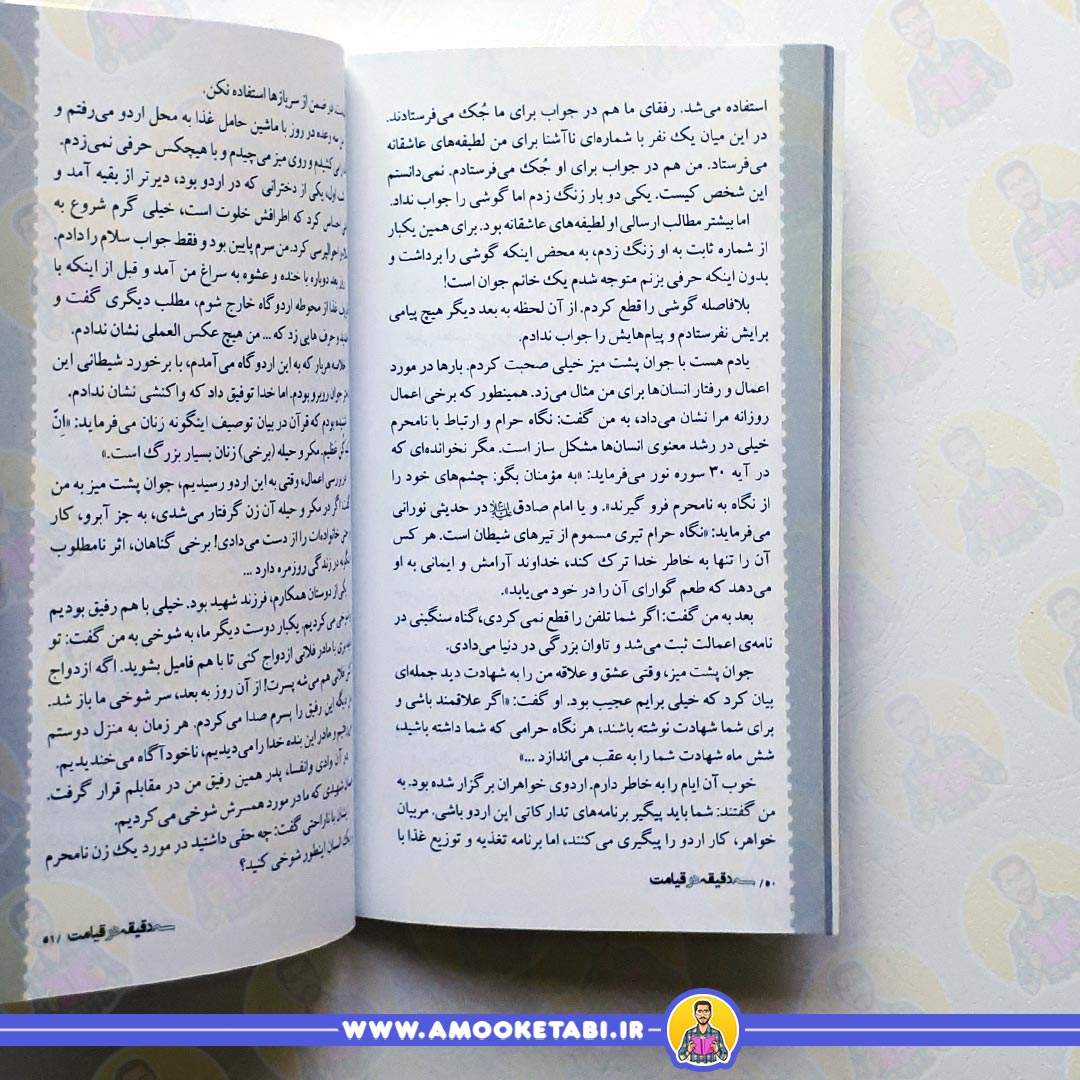 استفاده می‌شد. رفقای ما هم در جواب برای ما جُک می‌فرستادند.
در این میان یک نفر با شماره‌ای ناآشنا برای من لطیفه‌های عاشقانه
می‌فرستاد. من هم در جواب برای او جُک می‌فرستادم. نمی‌دانستم
این شخص کیست. یکی دو بار زنگ زدم اما گوشی را جواب نداد.
اما بیشتر مطالب ارسالی او لطیفه‌های عاشقانه بود. برای همین یکبار
از شماره ثابت به او زنگ زدم، به محض اینکه گوشی را برداشت و
بدون اینکه حرفی بزنم متوجه شدم یک خانم جوان است!
بلافاصله گوشی را قطع کردم. از آن لحظه به بعد دیگر هیچ پیامی
برایش نفرستادم و پیام‌هایش را جواب ندادم.
یادم هست با جوان پشت میز خیلی صحبت کردم. بارها در مورد
اعمال و رفتار انسان‌ها برای من مثال می‌زد. همینطور که برخی اعمال
روزانه مرا نشان می‌داد، به من گفت: نگاه حرام و ارتباط با نامحرم
خیلی در رشد معنوی انسان‌ها مشکل ساز است. مگر نخوانده‌ای که
در آیه ۳۰ سوره نور می‌فرماید: «به مؤمنان بگو: چشم‌های خود را
از نگاه به نامحرم فرو گیرند». و یا امام صادق در حدیثی نورانی
می‌فرماید: «نگاه حرام تیری مسموم از تیرهای شیطان است. هر کس
آن را تنها به خاطر خدا ترک کند، خداوند آرامش و ایمانی به او
می‌دهد که طعم گوارای آن را در خود می‌یابد».
بعد به من گفت: اگر شما تلفن را قطع نمی کردی، گناه سنگینی در
نامه‌ی اعمالت ثبت می‌شد و تاوان بزرگی در دنیا می‌دادی.
جوان پشت میز، وقتی عشق و علاقه من را به شهادت دید جمله‌ای
بیان کرد که خیلی برایم عجیب بود. او گفت: «اگر علاقمند باشی و
برای شما شهادت نوشته باشند، هر نگاه حرامی که شما داشته باشید،
شش ماه شهادت شما را به عقب می‌اندازد ...»
خوب آن ایام را به خاطر دارم. اردوی خواهران برگزار شده بود. به
من گفتند: شما باید پیگیر برنامه‌های تدارکاتی این اردو باشی. مربیان
خواهر، کار اردو را پیگیری می‌کنند، اما برنامه تغذیه و توزیع غذا با
۵۰/ سه دقیقه در قیامت
در ضمن از سربازها استفاده نکن.
سه وعده در روز با ماشین حامل غذا به محل اردو می‌رفتم و
و روی میز می‌چیدم و با هیچکس حرفی نمی‌زدم.
اول، یکی از دخترانی که در اردو بود، دیرتر از بقیه آمد و
احساس کرد که اطرافش خلوت است، خیلی گرم شروع به
احوالپرسی کرد. من سرم پایین بود و فقط جواب سلام را دادم.
بعد دوباره با خنده و عشوه به سراغ من آمد و قبل از اینکه با
غذا از محوطه اردوگاه خارج شوم، مطلب دیگری گفت و
و حرف هایی زد که ... من هیچ عکس العملی نشان ندادم.
خلاصه هربار که به این اردوگاه می‌آمدم، با برخورد شیطانی این
جوان روبرو بودم. اما خدا توفیق داد که واکنشی نشان ندادم.
شنیده بودم که قرآن در بیان توصیف اینگونه زنان می‌فرماید: «انّ
عظیم. مکر و حیله (برخی) زنان بسیار بزرگ است.»
در بررسی اعمال، وقتی به این اردو رسیدیم، جوان پشت میز به من
گفت: اگر در مکر و حیله آن زن گرفتار می‌شدی، به جز آبرو، کار
حتی خانواده‌ات را از دست می‌دادی! برخی گناهان، اثر نامطلوب
در زندگی روزمره دارد ...
یکی از دوستان همکارم، فرزند شهید بود. خیلی با هم رفیق بودیم
و شوخی می‌کردیم. یکبار دوست دیگر ما، به شوخی به من گفت: تو
با مادر فلانی ازدواج کنی تا با هم فامیل بشوید. اگه ازدواج
فلانی هم می‌شه پسرت! از آن روز به بعد، سر شوخی ما باز شد.
دیگه این رفیق را پسرم صدا می‌کردم. هر زمان به منزل دوستم
و مادر این بنده خدا را می‌دیدیم، ناخودآگاه می‌خندیدیم.
در آن وادی وانفسا، پدر همین رفیق من در مقابلم قرار گرفت.
همان شهیدی که ما در مورد همسرش شوخی می‌کردیم.
ایشان با ناراحتی گفت: چه حقی داشتید در مورد یک زن نامحرم
انسان اینطور شوخی کنید؟
سه دقیقه در قیامت /۵۱
WWW.AMOOKETABI.IR